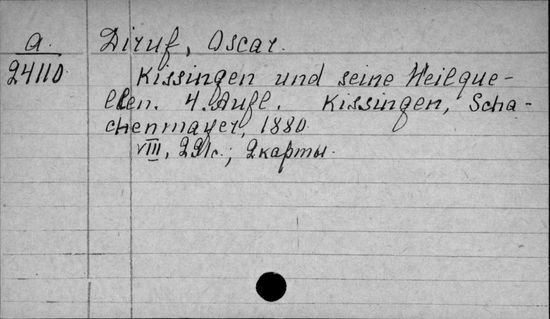 a
24110
Diruf, Oscar.
Kissingen und seine Heilque-
llen. 4. Aufl. Kissingen, Scha-
chenmayer, 1880.
VIII, с.; 2 карты.